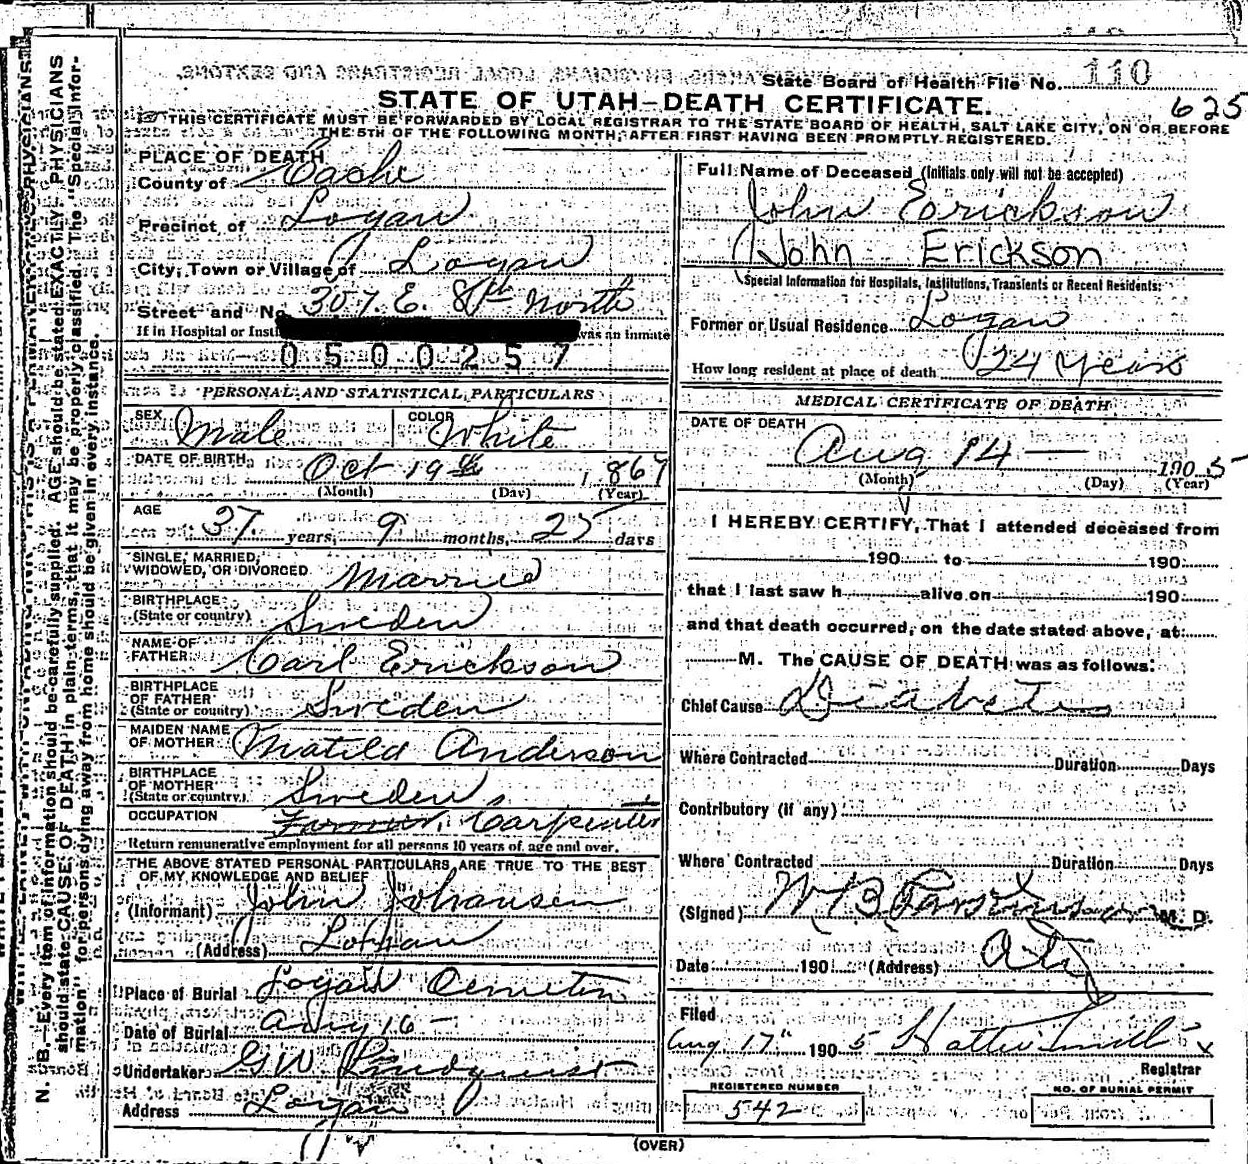 State Board of Health File No. 110
625
STATE OF UTAH—DEATH CERTIFICATE.
THIS CERTIFICATE MUST BE FORWARDED BY LOCAL REGISTRAR TO THE STATE BOARD OF HEALTH, SALT LAKE CITY, ON OR BEFORE
THE 5TH OF THE FOLLOWING MONTH, AFTER FIRST HAVING BEEN PROMPTLY REGISTERED.
N. B.—Every item of information should be carefully supplied. AGE should be stated EXACTLY. PHYSICIANS
should state CAUSE OF DEATH in plain terms, that it may be properly classified. The "Special Infor-
mation" for persons dying away from home should be given in every instance.
PLACE OF DEATH
County of Cache
Precinct of Logan
City, Town or Village of Logan
Street and No. 307. E. 8th North
If in Hospital or Insti was an inmate
0500257
PERSONAL AND STATISTICAL PARTICULARS
SEX Male COLOR White
DATE OF BIRTH Oct 19th 1867
(Month) (Day) (Year)
AGE 37 years, 9 months, 25 days
SINGLE, MARRIED,
WIDOWED, OR DIVORCED Married
BIRTHPLACE
(State or country) Sweden
NAME OF
FATHER Carl Erickson
BIRTHPLACE
OF FATHER
(State or country) Sweden
MAIDEN NAME
OF MOTHER Matild Anderson
BIRTHPLACE
OF MOTHER
(State or country) Sweden
OCCUPATION Farmer, Carpenter
Return remunerative employment for all persons 10 years of age and over.
THE ABOVE STATED PERSONAL PARTICULARS ARE TRUE TO THE BEST
OF MY KNOWLEDGE AND BELIEF
(Informant) John Johansen
(Address) Logan
Place of Burial Logan Cemetery
Date of Burial Aug 16 —
Undertaker G W Lindquist
Address Logan
Full Name of Deceased (Initials only will not be accepted)
John Erickson
(John Erickson
Special Information for Hospitals, Institutions, Transients or Recent Residents:
Former or Usual Residence Logan
How long resident at place of death 24 Years
MEDICAL CERTIFICATE OF DEATH
DATE OF DEATH
Aug 14 — 1905
(Month) (Day) (Year)
I HEREBY CERTIFY, That I attended deceased from
190 to 190
that I last saw h alive on 190
and that death occurred, on the date stated above, at
M. The CAUSE OF DEATH was as follows:
Chief Cause Diabetes
Where Contracted Duration Days
Contributory (if any)
Where Contracted Duration Days
(Signed) W B Parkinson M. D.
Date 190 (Address)
Filed
Aug. 17" 1905 Hattie Smith
Registrar
REGISTERED NUMBER
542
NO. OF BURIAL PERMIT
(OVER)